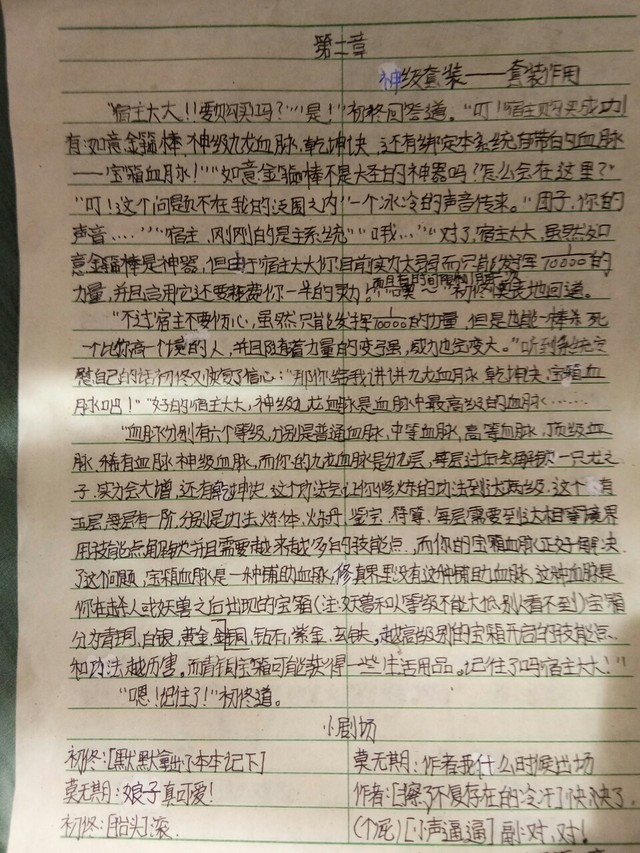 第二章
神级套装——套装作用
"宿主大大!!要购买吗?""是!"初柊回答道。"叮!宿主购买成功!
有:如意金箍棒,神级九龙血脉,乾坤诀,还有绑定本系统自带的血脉
——宝箱血脉!""如意金箍棒不是大圣的神器吗?怎么会在这里?"
"叮!这个问题不在我的范围之内"一个冰冷的声音传来。"团子,你的
声音……""宿主,刚刚的是主系统""哦…""对了,宿主大大,虽然如
意金箍棒是神器,但由于宿主大大你目前实力太弱而只能发挥1/10000的
力量,并且启用它还要耗费你一半的灵力,而且有时间限制1月一次
"初柊
地回道。
"不过宿主不要伤心,虽然只能发挥1/10000的力量,但是也能一棒杀死
一个比你高一个境的人,并且随着力量的变强,威力也会变大。"听到系统安
慰自己的话初柊又恢复了信心:"那你给我讲讲九龙血脉,乾坤诀,宝箱血
脉吧!""好的宿主大大,神级九龙血脉是血脉中最高级的血脉……
"血脉分别有六个等级,分别是普通血脉,中等血脉,高等血脉,顶级血
脉,稀有血脉,神级血脉,而你的九龙血脉是分九层,每层过后会解锁一只龙之
子,实力会大增,还有乾坤诀,这个功法会让你修炼的功法到达高级,这个 有
五层,每层有一阶,分别是功法,炼体,炼丹,鉴宝,符箓,每层需要到达相等境界
用技能点解锁并且需要越来越多的技能点,而你的宝箱血脉正好解决
了这问题,宝箱血脉是一种辅助血脉,修真界里没有这种辅助血脉,这种血脉是
你在击杀人或妖兽之后出现的宝箱(注:妖兽和人等级不能太低,别人看不到)宝箱
分为青铜,白银,黄金,钻石,紫金,玄铁。越高级别的宝箱开启的技能点
和功法越厉害。而青铜宝箱可能获得一些生活用品。记住了吗宿主大大!"
"嗯!记住了!"初柊道。
小剧场
初柊:[默默拿出小本本记下]
莫无期:娘子真可爱!
初柊:[抬头]滚.
莫无期:作者我什么时候出场
作者:[擦了不复存在的冷汗]快,快了.
(个屁)[小声逼逼]副:对,对!